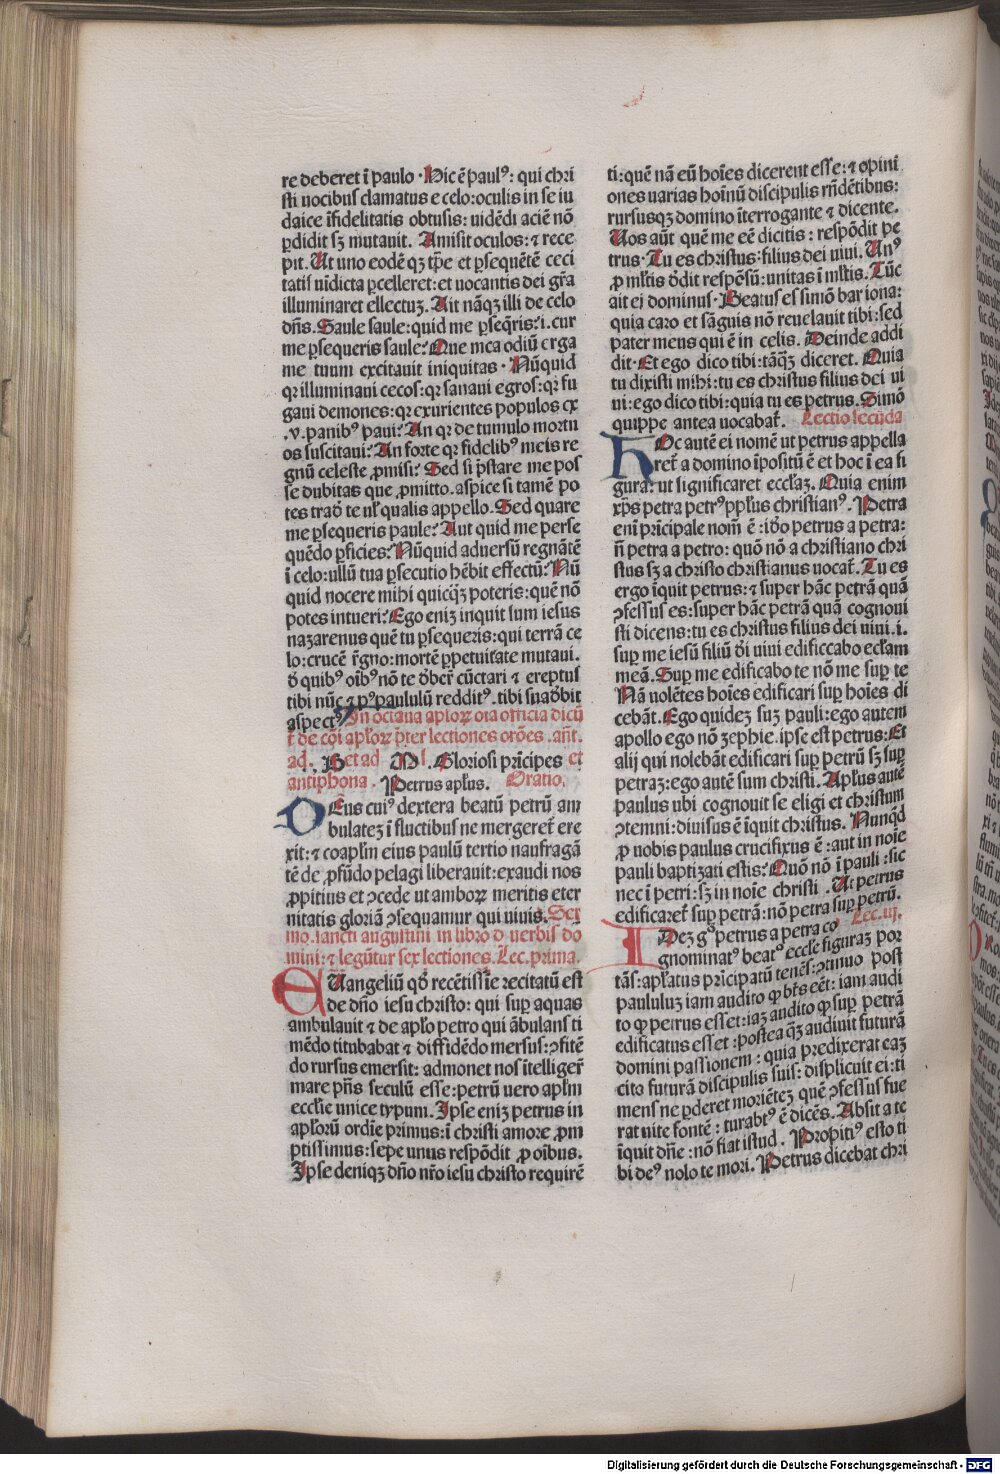 re deberet ī paulo · Hic ē paulꝰ: qui chri
sti uocibus clamatus e celo: oculis in se iu
daice īfidelitatis obtusis: uidēdi aciē nō
ꝑdidit sꝫ mutauit. Amisit oculos: ⁊ rece
pit. Ut uno eodē qꝫ tꝑe et ꝑsequētē ceci
tatis uīdicta ꝑcelleret: et uocantis dei gr̄a
illuminaret ellectuꝫ. Ait nāqꝫ illi de celo
dn̄s. Saule saule: quid me ꝑseq̄ris? .i. cur
me ꝑsequeris saule? Que mea odiū erga
me tuum excitauit iniquitas · Nūquid
qꝛ illuminaui cecos: qꝛ sanaui egros: qꝛ fu
gaui demones: qꝛ exurientes populos ex
.v. panibꝰ paui? An qꝛ de tumulo mortu
os suscitaui? An forte qꝛ fidelibꝰ meis re
gnū celeste ꝓmisi? Sed si p̄stare me pos
se dubitas que ꝓmitto. aspice si tamē po
tes traō te ul̓ qualis appello. Sed quare
me ꝑsequeris paule? Aut quid me perse
quēdo ꝑficies? Nūquid aduersū regnātē
ī celo: ullū tua ꝑsecutio hēbit effectū? Nū
quid nocere mihi quicqꝫ poteris: quē nō
potes intueri? Ego eniꝫ inquit sum iesus
nazarenus quē tu ꝑsequeris: qui terrā ce
lo: crucē r̄gno: mortē ꝑpetuitate mutaui.
ð quibꝰ oībꝰ nō te ðbet cūctari ⁊ ereptus
tibi nūc ⁊ pꝰ paululū redditꝰ. tibi suaðbit
aspectꝰ. In octaua aploꝝ oīa officia dicū
t̄ de cōi apl̓oꝝ p̄ter lectiones orōes . ant̄.
ad. Bet ad Ml. Gloriosi prīcipes et
antiphona . Petrus apl̓us. Oratio.
DEus cuiꝰ dextera beatū petrū am
bulateꝫ ī fluctibus ne mergeret̄ ere
xit: ⁊ coapl̓m eius paulū tertio naufragā
tē de ꝓfūdo pelagi liberauit: exaudi nos
ꝓpitius et ↄcede ut amboꝝ meritis eter
nitatis gloriā ↄsequamur qui uiuis. Ser
mo. sancti augustini in libro ð uerbis do
mini: ⁊ legūtur sex lectiones. Lec. prima.
EUangeliū qð recētissīe recitatū est
de dn̄o iesu christo: qui suꝑ aquas
ambulauit ⁊ de apl̓o petro qui ābulans ti
mēdo titubabat ⁊ diffidēdo mersus: ↄfitē
do rursus emersit: admonet nos ītelliger̄
mare p̄ns seculū esse: petrū uero apl̓m
eccl̓ie unice typum. Ipse eniꝫ petrus in
apl̓orū ordīe primus: ī christi amore ꝓm
ptissimus: sepe unus respōdit ꝓ oībus.
Ipse deniqꝫ dn̄o nr̄o iesu christo requirē
ti: quē nā eū hoīes dicerent esse: ⁊ opini
ones uarias hoīnū discipulis rn̄dētibus:
rursusqꝫ domino īterrogante ⁊ dicente.
Uos aūt quē me eē dicitis: respōdit pe
trus · Tu es christus: filius dei uiui. Unꝰ
ꝓ ml̓tis ðdit respōsū: unitas ī ml̓tis. Tūc
ait ei dominus · Beatus es simō bar iona:
quia caro et sāguis nō reuelauit tibi: sed
pater meus qui ē in celis. Deinde addi
dit · Et ego dico tibi: tāqꝫ diceret. Quia
tu dixisti mihi: tu es christus filius dei ui
ui: ego dico tibi: quia tu es petrus. Simō
quippe antea uocabat̄. Lectio secūda
HOc autē ei nomē ut petrus appella
ret̄ a domino īpositū ē et hoc ī ea fi
gura: ut significaret eccl̓aꝫ. Quia enim
xp̄s petra petrꝰ ppl̓us christianꝰ. Petra
enī prīcipale nom̄ ē: iðo petrus a petra:
n̄ petra a petro: quō nō a christiano chri
stus sꝫ a christo christianus uocat̄. Tu es
ergo īquit petrus: ⁊ super hāc petrā quā
ↄfessus es: super hāc petrā quā cognoui
sti dicens: tu es christus filius dei uiui. i.
suꝑ me iesū filiū ði uiui edificcabo eccl̓am
meā. Suꝑ me edificabo te nō me suꝑ te
Nā uolētes hoīes edificari suꝑ hoīes di
cebāt. Ego quideꝫ suꝫ pauli: ego autem
apollo ego nō zephie. ipse est petrus: Et
alij qui nolebāt edificari suꝑ petrū sꝫ suꝑ
petraꝫ: ego autē sum christi. Apl̓us autē
paulus ubi cognouit se eligi et christum
ↄtemni: diuisus ē īquit christus. Nunqd̄
ꝓ uobis paulus crucifixus ē: aut in noīe
pauli baptizati estis? Quō nō ī pauli: sic
nec ī petri: sꝫ in noīe christi . Ut petrus
edificaret̄ suꝑ petrā: nō petra suꝑ petrū.
Lec. iij.
IDeꝫ gͦ petrus a petra co
gnominatꝰ beatꝰ eccl̓e figuraꝫ por
tās: apl̓atus prīcipatū tenēs: ↄtinuo post
paululuꝫ iam audito ꝙ bt̄s eēt: iam audi
to ꝙ petrus esset: iaꝫ audito ꝙ suꝑ petrā
edificatus esset: postea qꝫ audiuit futurā
domini passionem: quia predixerat eaꝫ
cito futurā discipulis suis: displicuit ei: ti
mens ne ꝑderet moriēteꝫ quē ↄfessus fue
rat uite fontē: turabtꝰ ē dicēs. Absit a te
īquit dn̄e: nō fiat istud . Propitiꝰ esto ti
bi deꝰ nolo te mori. Petrus dicebat chri
Digitalisierung gefördert durch die Deutsche Forschungsgemeinschaft - DFG